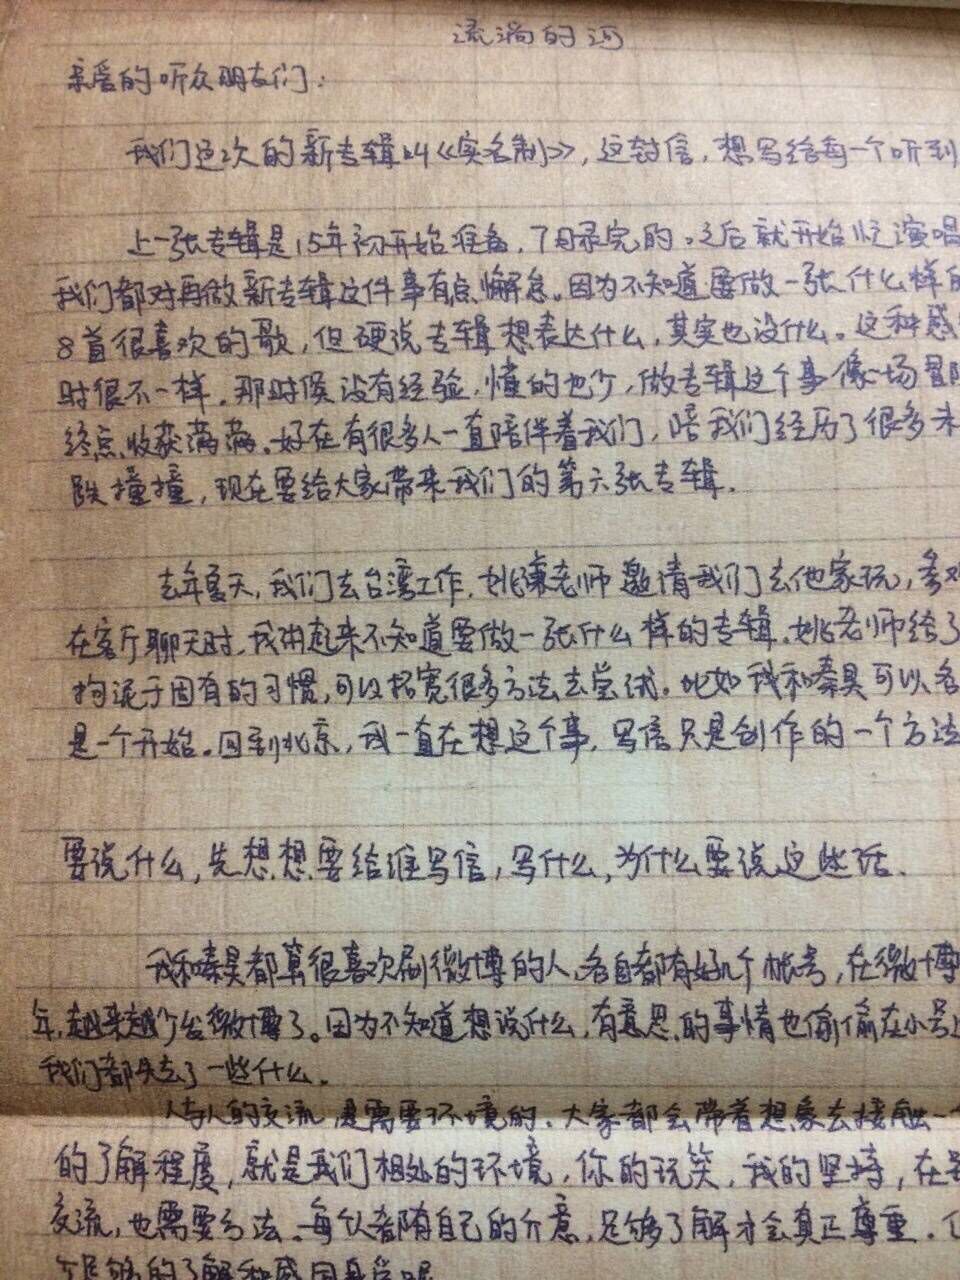 流淌的河
亲爱的听众朋友们：
我们这次的新专辑叫《实名制》，这封信，想写给每一个听到
上一张专辑是15年初开始准备，7月录完的。之后就开始忙演唱
我们都对再做新专辑这件事有点懈怠。因为不知道要做一张什么样的
8首很喜欢的歌，但硬说专辑想表达什么，其实也没什么。这种感
时很不一样。那时候没有经验，懂的也少，做专辑这个事像一场冒险
终点收获满满。好在有很多人一直陪伴着我们，陪我们经历了很多未
跌撞撞，现在要给大家带来我们的第六张专辑。
去年夏天，我们去台湾工作，姚谦老师邀请我们去他家玩，参观
在客厅聊天时，我讲起来不知道要做一张什么样的专辑，姚老师给了
拘泥于固有的习惯，可以拓宽很多方法去尝试。比如我和秦昊可以各
是一个开始。回到北京，我一直在想这个事，写信只是创作的一个方法
要说什么，先想想要给谁写信，写什么，为什么要说这些话。
我和秦昊都算很喜欢刷微博的人，各自都有好几个帐号，在微博
年，越来越少发微博了。因为不知道想说什么，有意思的事情也偷偷在小号上
我们都失去了一些什么。
人与人的交流，是需要环境的。大家都会带着想象去接触一
的了解程度，就是我们相处的环境，你的玩笑，我的坚持，在
交流，也需要方法。每个人都有自己的介意，足够了解才会真正尊重。
足够的了解和感同身受呢